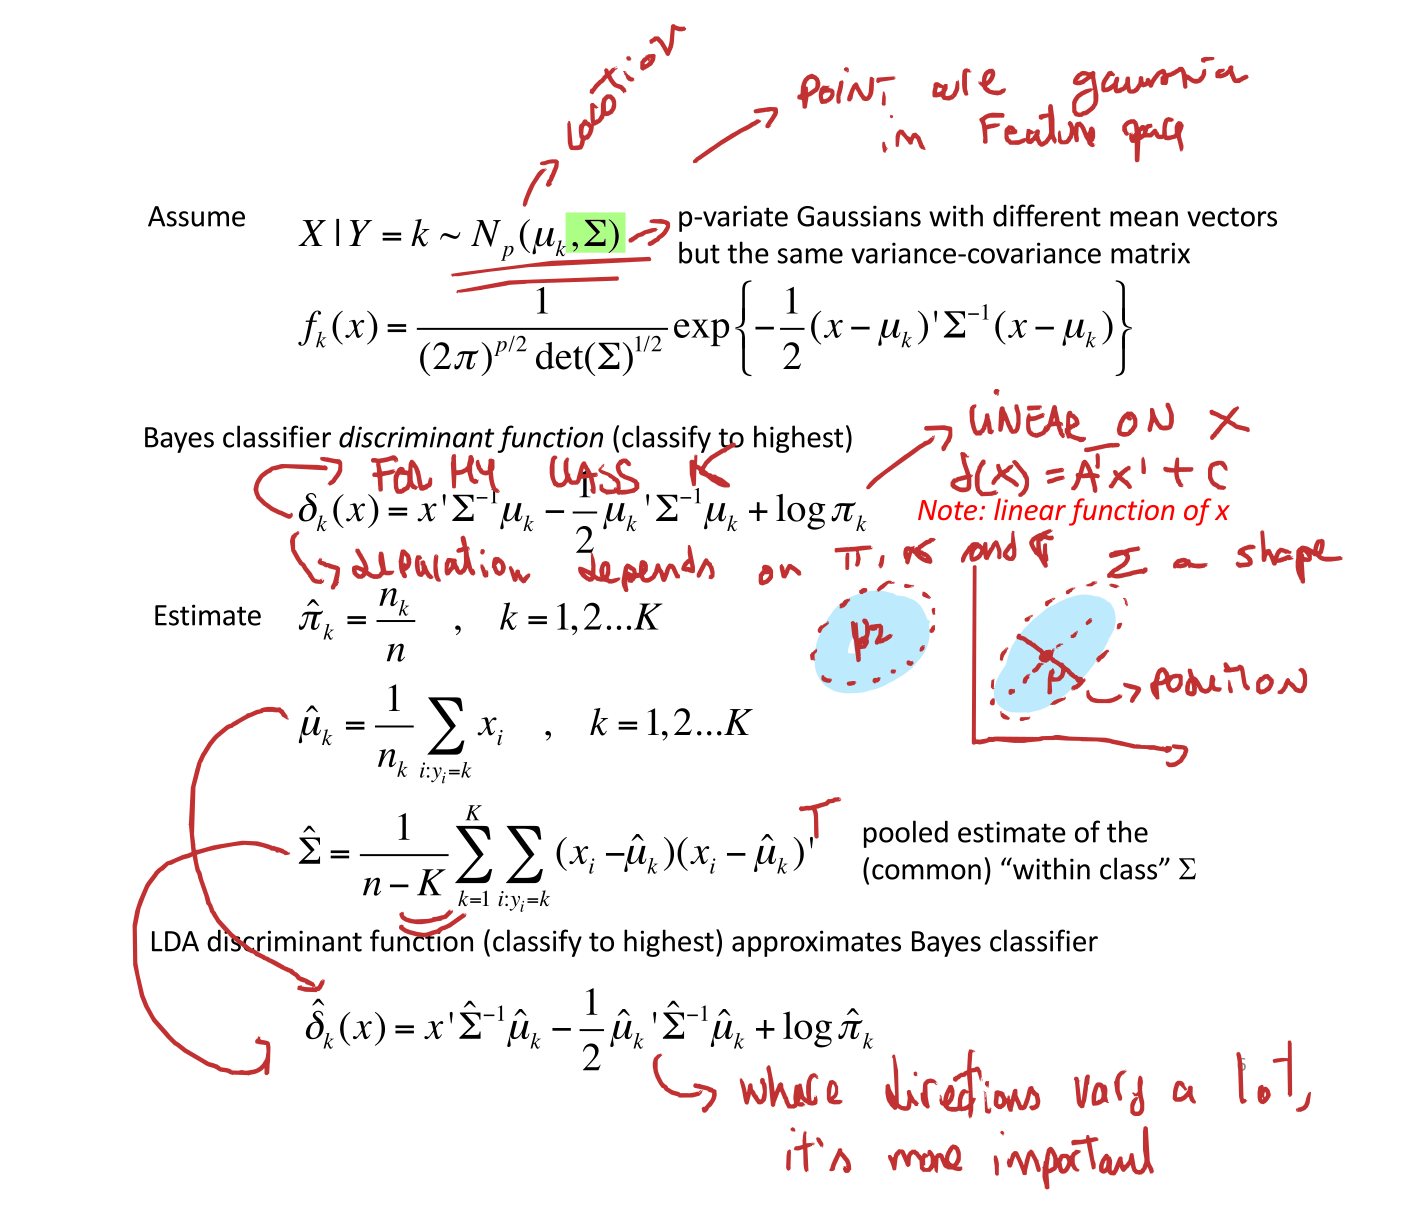 Location
POINT are gaussia
in Feature space
Assume
X | Y = k ~ N_p(μ_k, Σ)
p-variate Gaussians with different mean vectors
but the same variance-covariance matrix
f_k(x) = 1 / ((2π)^{p/2} det(Σ)^{1/2}) exp{ -1/2 (x − μ_k)' Σ^{-1} (x − μ_k) }
LINEAR ON X
Bayes classifier discriminant function (classify to highest)
FOR MY CLASS K
δ(x) = A^T x' + C
δ_k(x) = x'Σ^{-1}μ_k − 1/2 μ_k'Σ^{-1}μ_k + log π_k
Note: linear function of x
separation depends on π, and
Σ a shape
Estimate
π̂_k = n_k / n , k = 1,2...K
μ2
μ
position
μ̂_k = 1/n_k ∑_{i:y_i=k} x_i , k = 1,2...K
Σ̂ = 1/(n − K) ∑_{k=1}^{K} ∑_{i:y_i=k} (x_i − μ̂_k)(x_i − μ̂_k)' T
pooled estimate of the
(common) “within class” Σ
LDA discriminant function (classify to highest) approximates Bayes classifier
δ̂_k(x) = x'Σ̂^{-1}μ̂_k − 1/2 μ̂_k'Σ̂^{-1}μ̂_k + log π̂_k
where directions vary a lot,
it's more important